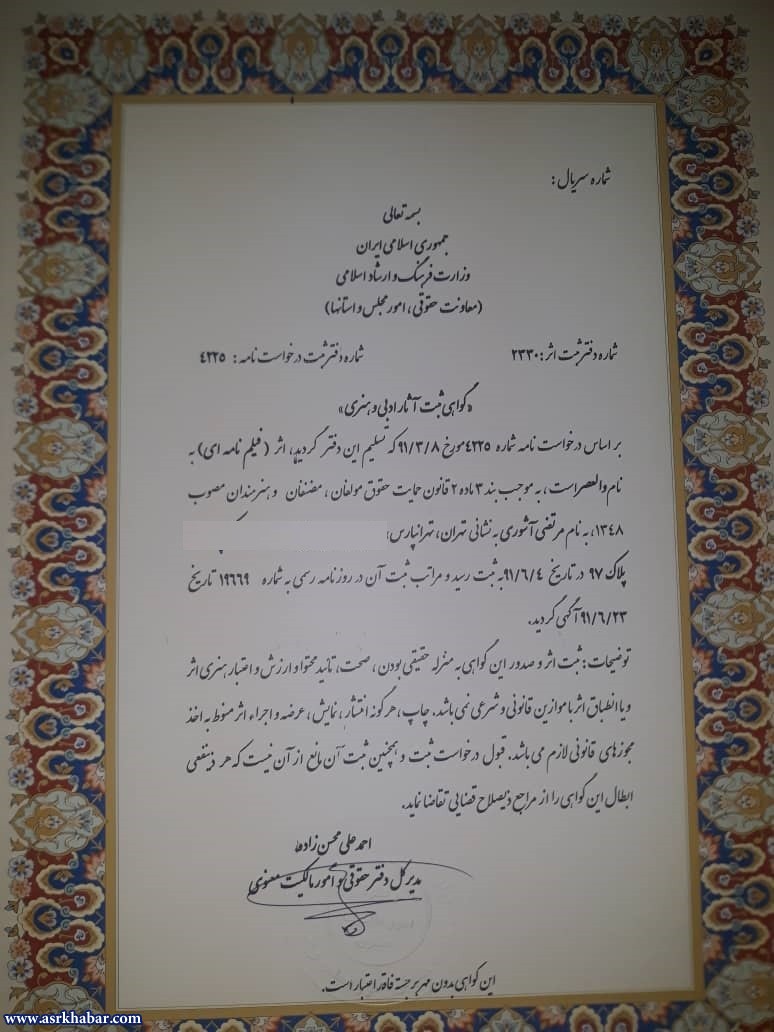 شماره سریال:
بسمه تعالی
جمهوری اسلامی ایران
وزارت فرهنگ و ارشاد اسلامی
(معاونت حقوقی، امور مجلس و استانها)
شماره دفتر ثبت اثر: ۲۳۳۰ شماره دفتر ثبت درخواست نامه: ۴۲۲۵
«گواهی ثبت آثار ادبی و هنری»
بر اساس درخواست نامه شماره ۴۲۲۵ مورخ ۹۱/۳/۸ که تسلیم این دفتر گردید، اثر (فیلم نامه ای) به
نام والعصر است، به موجب بند ۳ ماده ۲ قانون حمایت حقوق مولفان، مصنفان و هنرمندان مصوب
۱۳۴۸، به نام مرتضی آشوری به نشانی تهران، تهرانپارس،
پلاک ۹۷ در تاریخ ۹۱/۶/۴ به ثبت رسید و مراتب ثبت آن در روزنامه رسمی به شماره ۱۹۶۶۹ تاریخ
۹۱/۶/۲۳ آگهی گردید.
توضیحات: ثبت اثر و صدور این گواهی به منزله حقیقی بودن، صحت، تائید محتوا و ارزش و اعتبار هنری اثر
و یا انطباق اثر با موازین قانونی و شرعی نمی باشد. چاپ، هرگونه انتشار، نمایش، عرضه و اجراء اثر منوط به اخذ
مجوزهای قانونی لازم می باشد. قبول درخواست ثبت و همچنین ثبت آن مانع از آن نیست که هر ذینفعی
ابطال این گواهی را از مراجع ذیصلاح قضایی تقاضا نماید.
احمد علی محسن زاده
مدیر کل دفتر حقوقی و امور مالکیت معنوی
این گواهی بدون مهر برجسته فاقد اعتبار است.
www.asrkhabar.com